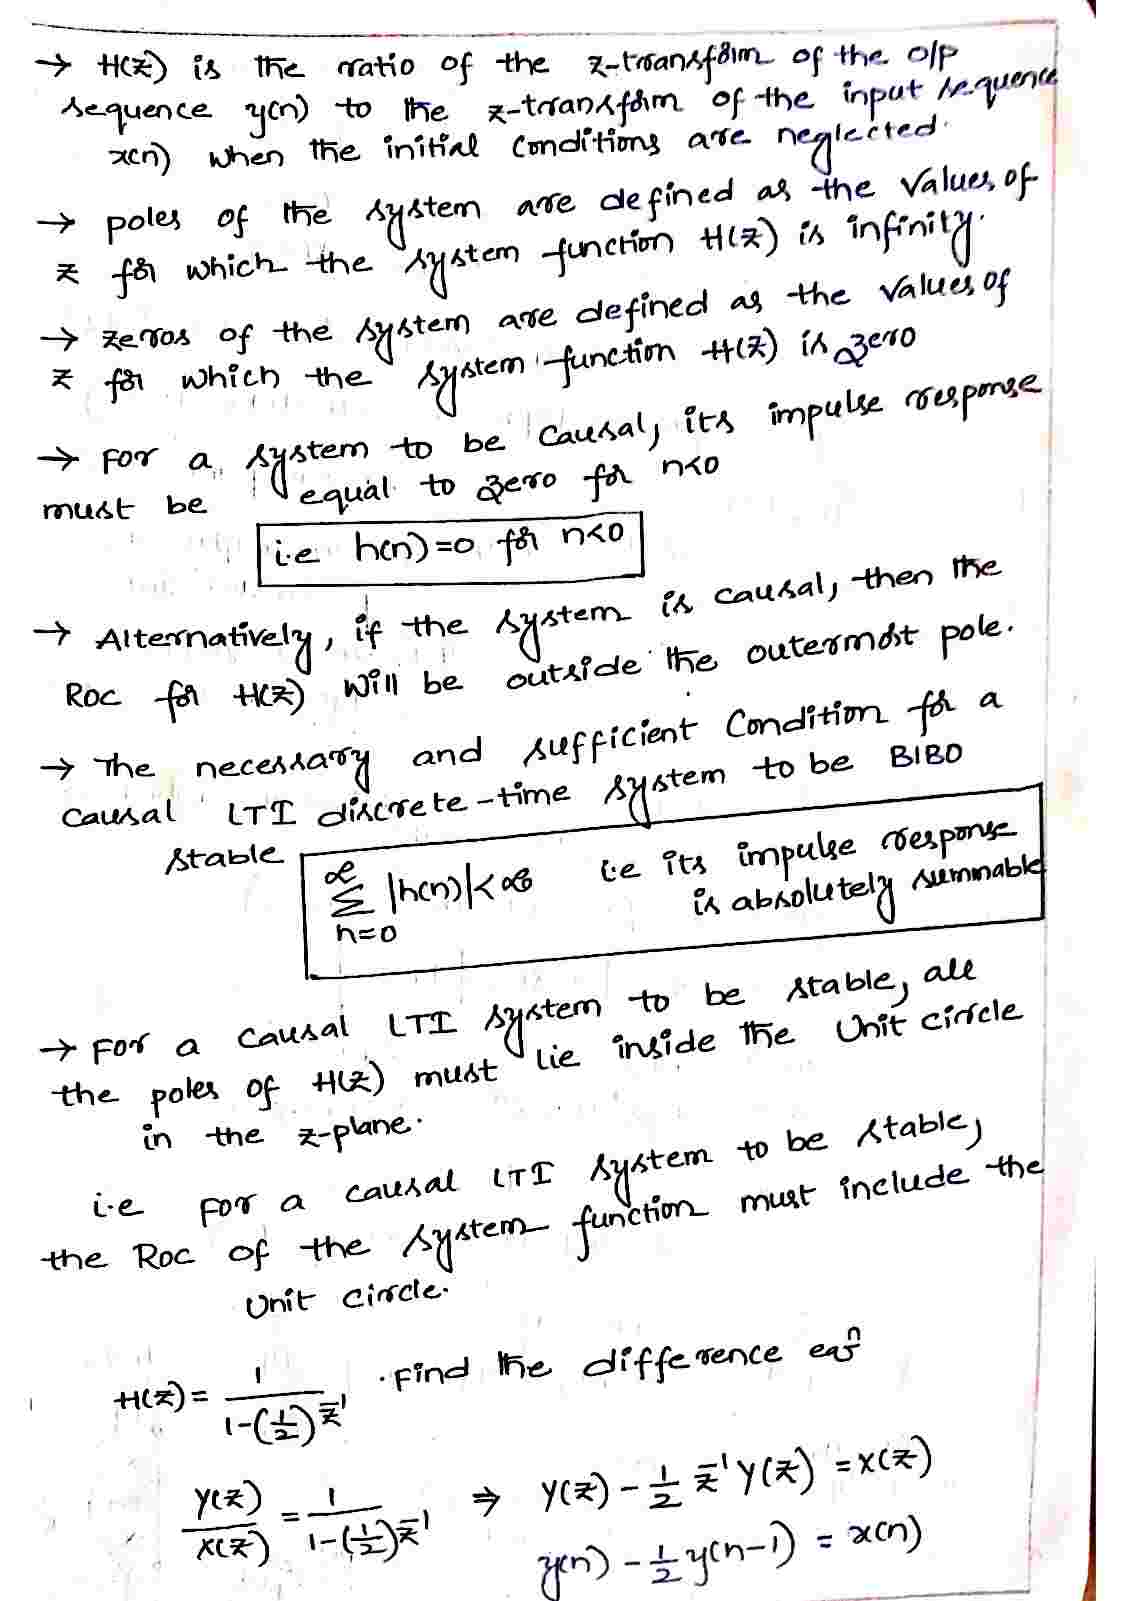 → H(z) is the ratio of the z-transform of the o/p
sequence y(n) to the z-transform of the input sequence
x(n) when the initial conditions are neglected.
→ poles of the system are defined as the values of
z for which the system function H(z) is infinity.
→ zeros of the system are defined as the values of
z for which the system function H(z) is zero
→ For a system to be causal, its impulse response
must be equal to zero for n<0
i.e h(n)=0 for n<0
→ Alternatively, if the system is causal, then the
ROC for H(z) will be outside the outermost pole.
→ The necessary and sufficient condition for a
causal LTI discrete-time system to be BIBO
stable
∞ ∑ n=0 |h(n)|<∞ i.e its impulse response
is absolutely summable
→ For a causal LTI system to be stable, all
the poles of H(z) must lie inside the unit circle
in the z-plane.
i.e For a causal LTI system to be stable,
the ROC of the system function must include the
unit circle.
H(z) = 1/(1-(1/2)z⁻¹) . Find the difference eqⁿ
Y(z)/X(z) = 1/(1-(1/2)z⁻¹) ⇒ Y(z) - 1/2 z⁻¹ Y(z) = X(z)
y(n) - 1/2 y(n-1) = x(n)